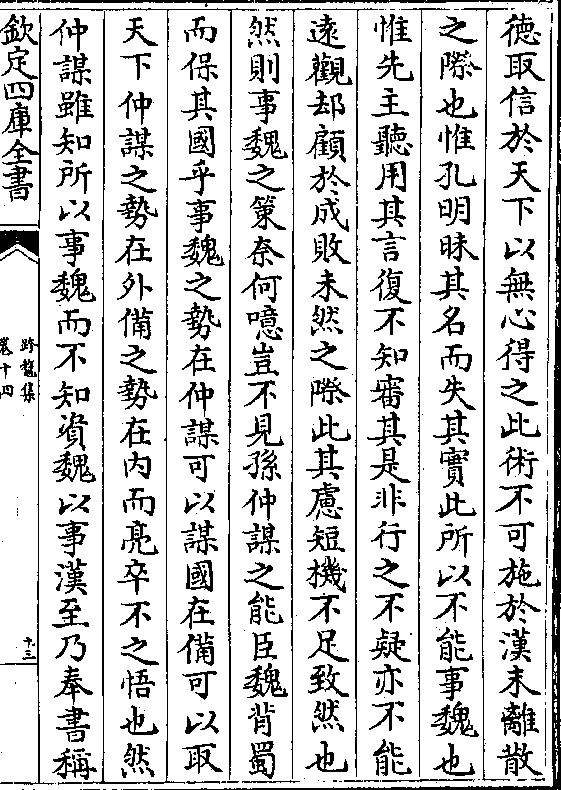 德取信於天下以無心得之此術不可施於漢末離散
之際也惟孔明昧其名而失其實此所以不能事魏也
惟先主聽用其言復不知審其是非行之不疑亦不能
遠觀却顧於成敗未然之際此其慮短機不足致然也
然則事魏之策奈何噫豈不見孫仲謀之能臣魏背蜀
而保其國乎事魏之勢在仲謀可以謀國在備可以取
天下仲謀之勢在外備之勢在內而亮卒不之悟也然
仲謀雖知所以事魏而不知資魏以事漢至乃奉書稱
欽定四庫全書
跨鼇集
卷十四
十三